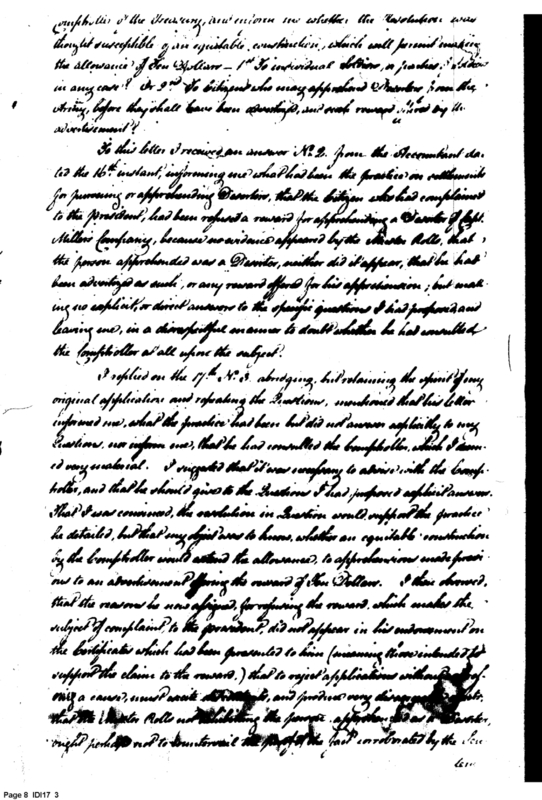 Comptroller of the Treasury, and inform me whether the Resolution was
thought susceptible of an equitable construction, which will permit making
the allowance of Ten Dollars – 1st To individual Soldiers, or parties of soldiers
in any case? Or 2nd To Citizens who may apprehend Deserters from the
Army, before they shall have been advertised, and such reward offered by the
advertisement?
To this letter I received an answer No. 2. from the Accountant da-
ted the 16th instant, informing me what had been the practice on settlements
for pursuing or apprehending Deserters, that the Citizen who had complained
to the President, had been refused a reward for apprehending a Deserter of Capt.
Millers Company, because no evidence appeared by the Muster Rolls, that
the person apprehended was a Deserter, neither did it appear, that he had
been advertized as such, or any reward offered for his apprehension; but mak-
ing no explicit, or direct answers to the specific questions I had proposed, and
leaving me, in a disrespectful manner to doubt whether he had consulted
the Comptroller at all upon the subject.
I replied on the 17th No. 3. abridging, but retaining the spirit of my
original application and repeating the Questions, mentioned that his letter
informed me, what the practice had been but did not answer explicitly to my
Questions, nor inform me, that he had consulted the Comptroller, which I deem-
ed very material. I suggested that it was necessary to advise with the Comp-
troller, and that he should give to the Questions I had proposed explicit answers.
That I was convinced, the resolution in Question would support the practice
he detailed, but that my object was to know, whether an equitable construction
by the Comptroller would extend the allowance, to apprehensions made previ-
ous to an advertisement offering the reward of Ten Dollars. I then observed,
that the reasons he now assigned, for refusing the reward, which makes the
subject of complaint, to the president, did not appear in his endorsement on
the Certificates which had been presented to him (meaning those intended to
support the claim to the reward,) that to reject applications without assign-
ing a cause, must excite, and produce very
that the Muster Roll not exhibiting the person apprehended as a Deserter,
ought perhaps not to countervail the proof of the fact corroborated by the Lieu
ten
Page 8 IDI17 3